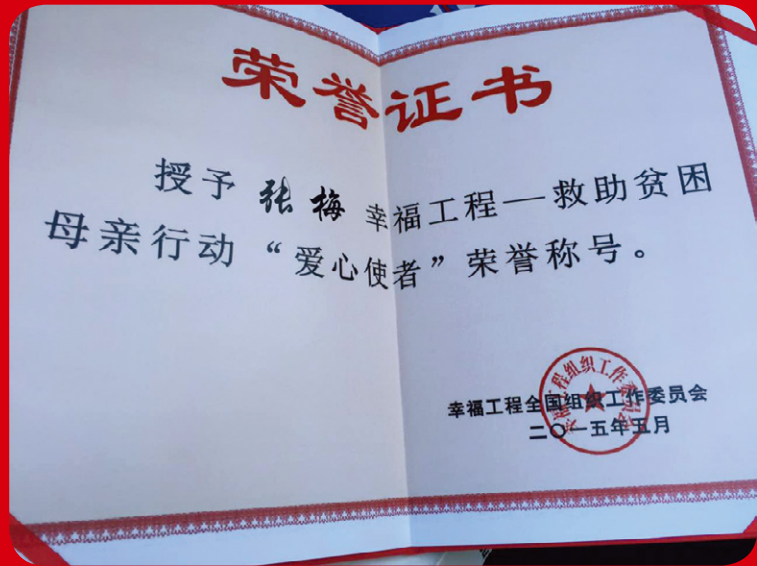 荣誉证书
授予 张梅 幸福工程—救助贫困
母亲行动“爱心使者”荣誉称号。
幸福工程全国组织工作委员会
二〇一五年五月